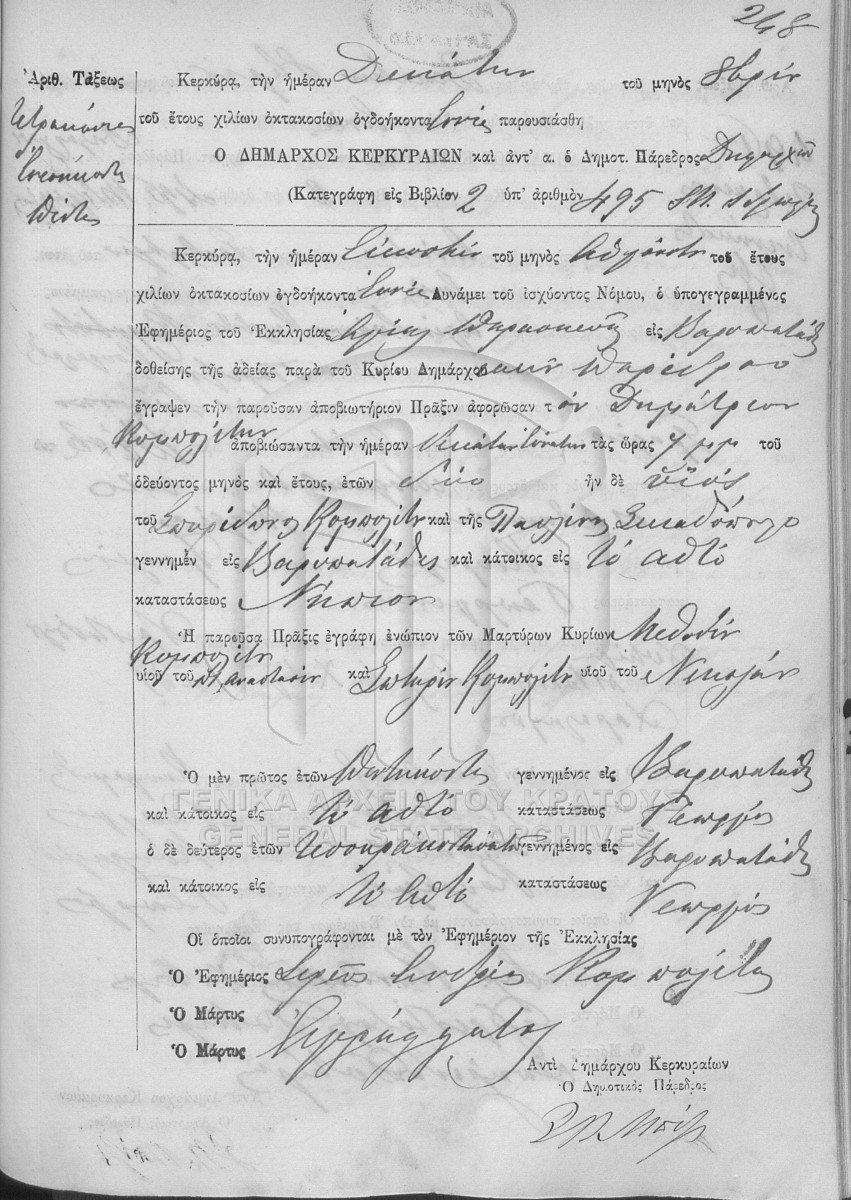 248
Ἀριθ. Τάξεως
Κερκύρα, τὴν ἡμέραν Δεκάτην τοῦ μηνὸς 8βρίου
Τετρακόσια
τοῦ ἔτους χιλίων ὀκτακοσίων ὀγδοήκοντα ἐννέα παρουσιάσθη
ἐνενήκοντα
Ο ΔΗΜΑΡΧΟΣ ΚΕΡΚΥΡΑΙΩΝ καὶ ἀντ' α. ὁ Δημοτ. Πάρεδρος
πέντε
(Κατεγράφη εἰς Βιβλίον 2 ὑπ' ἀριθμὸν 495
Κερκύρα, τὴν ἡμέραν Εἰκοστὴν τοῦ μηνὸς Αὐγούστου τοῦ ἔτους
χιλίων ὀκτακοσίων ὀγδοήκοντα ἐννέα Δυνάμει τοῦ ἰσχύοντος Νόμου, ὁ ὑπογεγραμμένος
Ἐφημέριος τοῦ Ἐκκλησίας Ἁγίας Παρασκευῆς εἰς Βαρυπατάδες
δοθείσης τῆς ἀδείας παρὰ τοῦ Κυρίου Δημάρχου Παρέδρου
ἔγραψεν τὴν παροῦσαν ἀποβιωτήριον Πρᾶξιν ἀφορῶσαν τὸν Δημήτριον
Κομπολίτην ἀποβιώσαντα τὴν ἡμέραν Δεκάτην ἐννάτην τὰς ὥρας 7 μμ τοῦ
ὁδεύοντος μηνὸς καὶ ἔτους, ἐτῶν δύο ἦν δὲ υἱὸς
τοῦ Σπυρίδωνος Κομπολίτη καὶ τῆς Παυλίνης
γεννημὲν εἰς Βαρυπατάδες καὶ κάτοικος εἰς τὸ αὐτό
καταστάσεως Νήπιον
Ἡ παροῦσα Πρᾶξις ἐγράφη ἐνώπιον τῶν Μαρτύρων Κυρίων Μεθοδίου
Κομπολίτη
υἱοῦ τοῦ π. Αναστασίου καὶ Σωτηρίου Κομπολίτη υἱοῦ τοῦ Νικολάου
Ὁ μὲν πρῶτος ἐτῶν Πεντήκοντα γεννημένος εἰς Βαρυπατάδες
καὶ κάτοικος εἰς τὸ αὐτό καταστάσεως Γεωργός
ὁ δὲ δεύτερος ἐτῶν γεννημένος εἰς Βαρυπατάδες
καὶ κάτοικος εἰς τὸ αὐτό καταστάσεως Γεωργός
Οἱ ὁποῖοι συνυπογράφονται μὲ τὸν Ἐφημέριον τῆς Ἐκκλησίας
Ὁ Ἐφημέριος Ἱερεὺς Ἀνδρέας Κομπολίτης
Ὁ Μάρτυς
Ὁ Μάρτυς Ἀγράμματοι
Ἀντὶ Δημάρχου Κερκυραίων
Ὁ Δημοτικὸς Πάρεδρος
ΓΕΝΙΚΑ ΑΡΧΕΙΑ ΤΟΥ ΚΡΑΤΟΥΣ
GENERAL STATE ARCHIVES